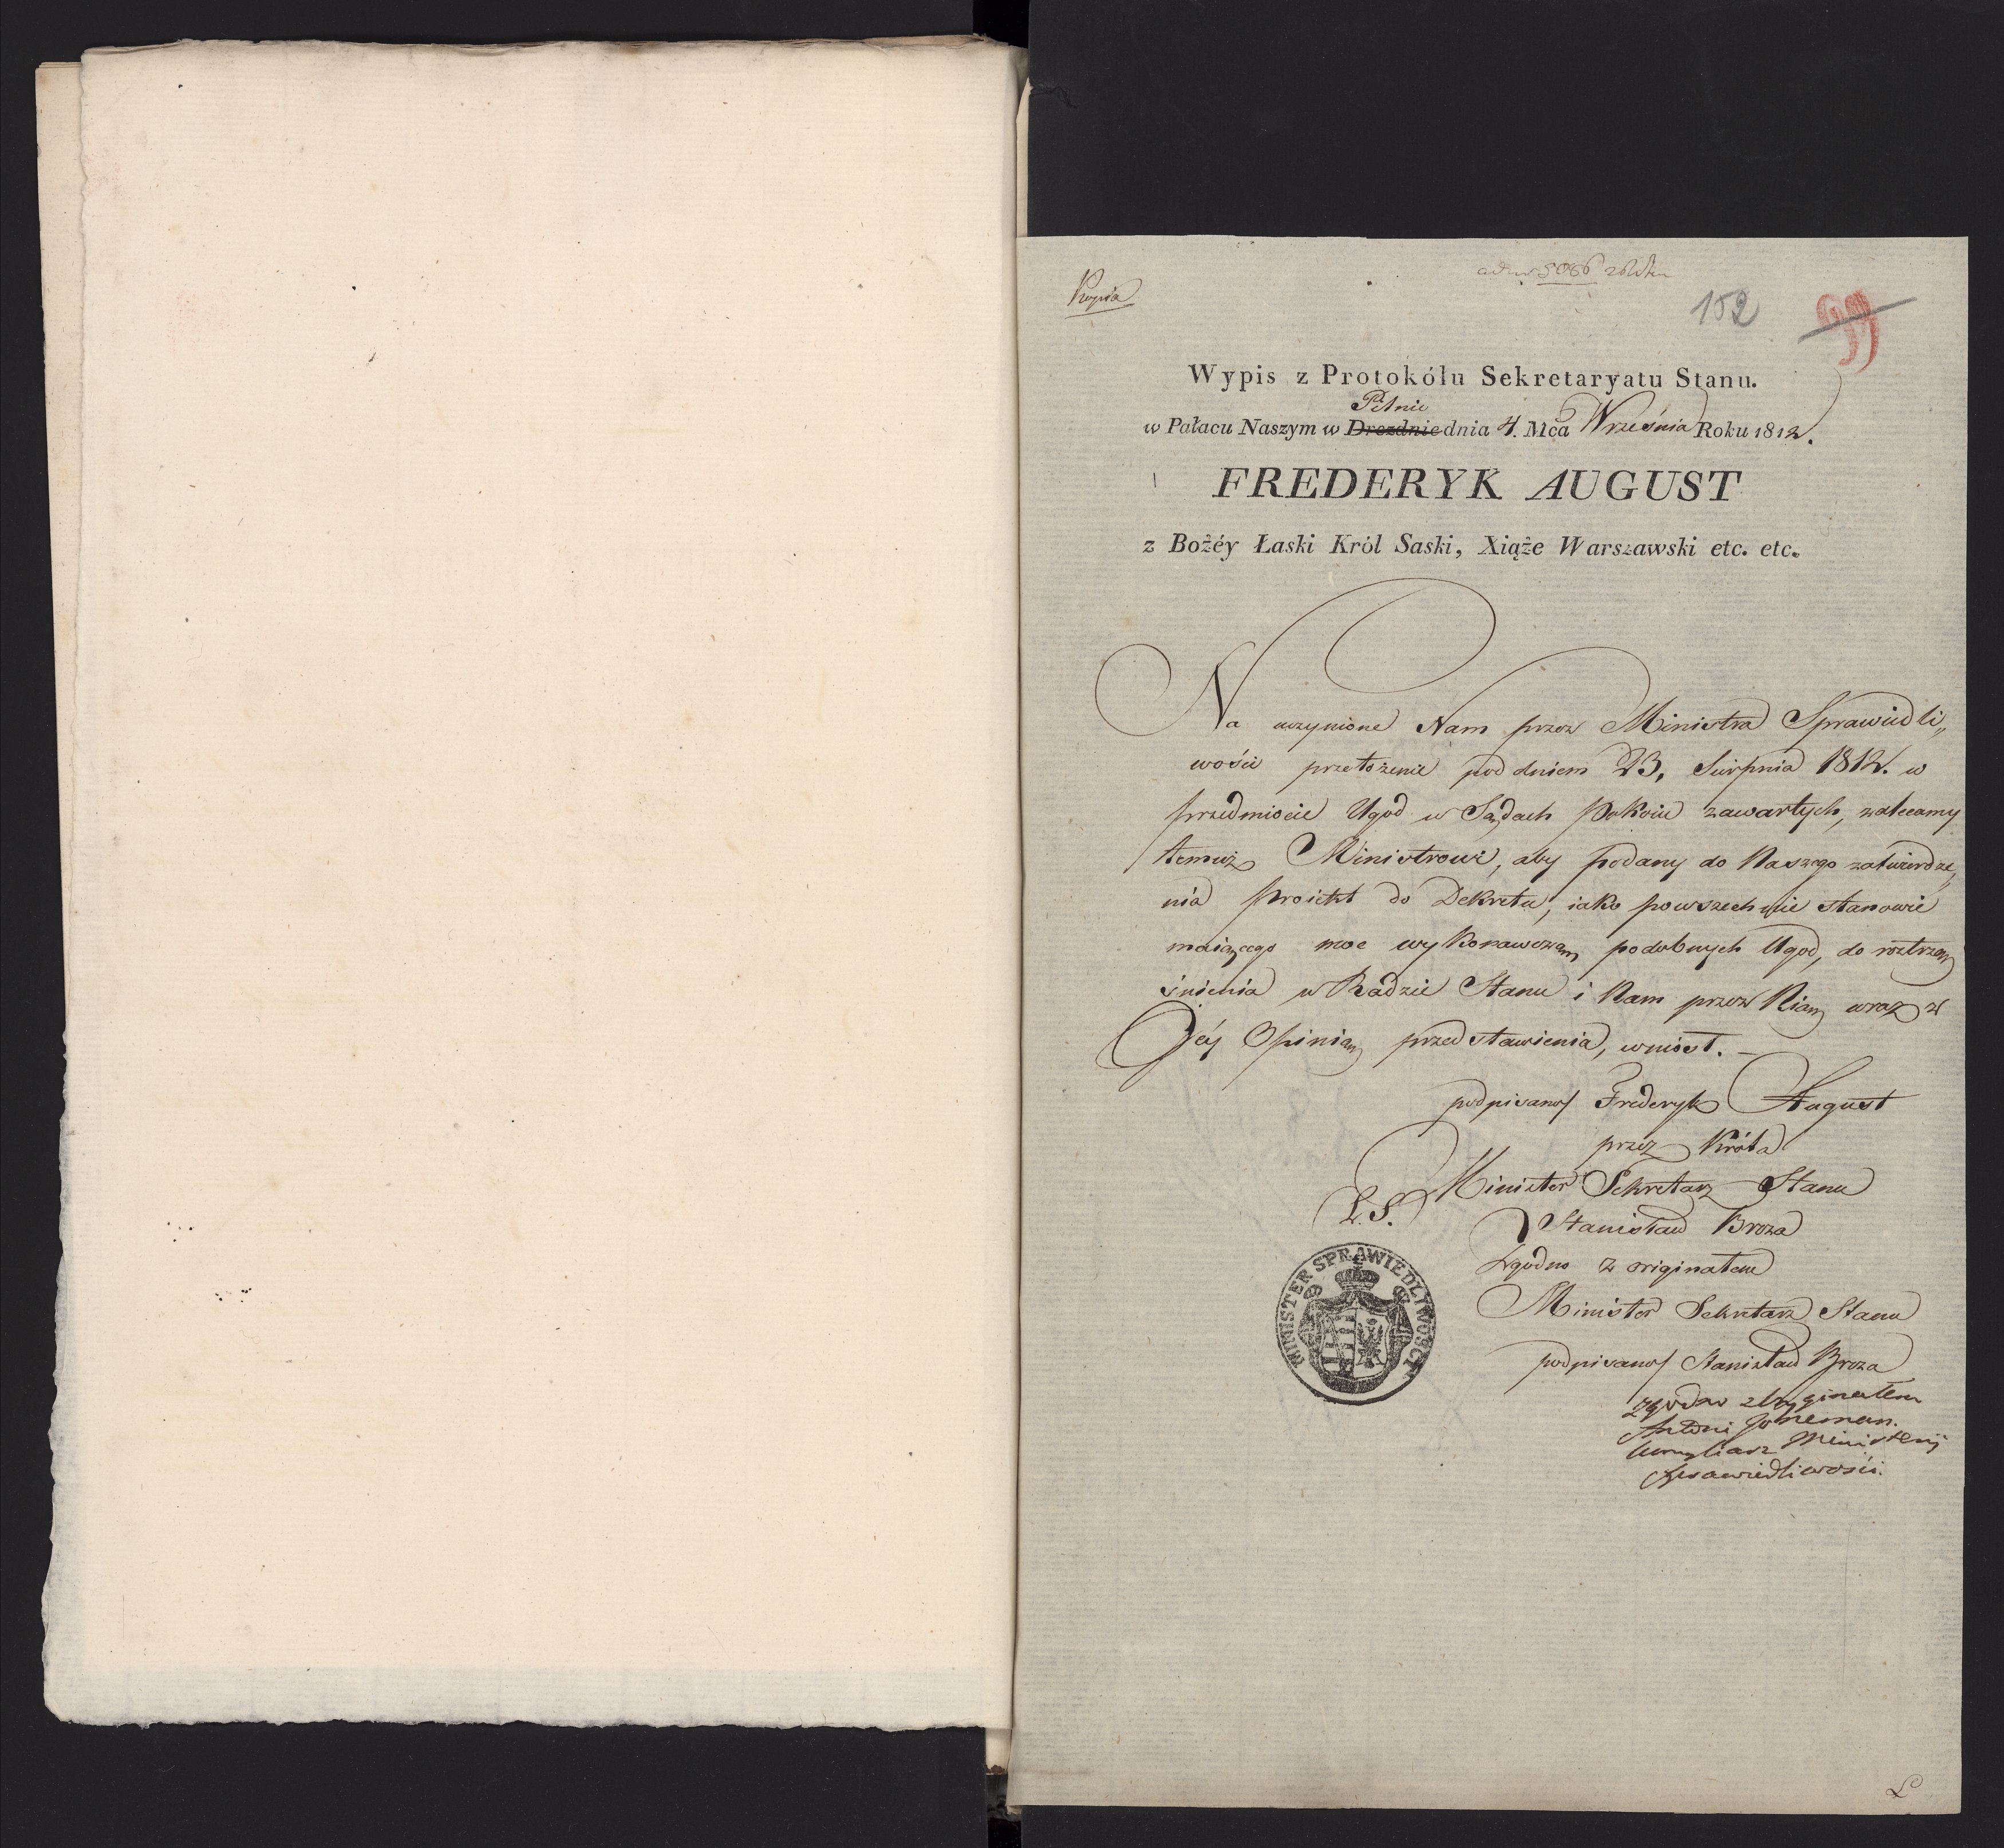 Kopia
152
99
Wypis z Protokółu Sekretaryatu Stanu.
Pilnie
w Pałacu Naszym w Dreźnie dnia 4. Mca Września Roku 1812.
FREDERYK AUGUST
z Bożéy Łaski Król Saski, Xiąże Warszawski etc. etc.
Na uczynione Nam przez Ministra Sprawiedli„
wości przełożenie pod dniem 23. Sierpnia 1812. w
przedmiocie Ugod w Sądach Pokoiu zawartych, zalecamy
temuż Ministrowi, aby podany do Naszego zatwierdze„
nia Proiekt do Dekretu, iako powszechnie stanowić
maiącego moc wykonawczą podobnych Ugod, do roztrzą„
śnienia w Radzie Stanu i Nam przez Nią wraz z
Jéy Opinią przedstawienia, wniósł.
podpisano/ Frederyk August
przez Króla
Minister Sekretarz Stanu
L. S.
Stanisław Breza
Zgodno z originałem
Minister Sekretarz Stanu
podpisano/ Stanisław Breza
MINISTER SPRAWIEDLIWOSCI
zgodno z Oryginałem
Antoni
Ministerij
Sprawiedliwości.